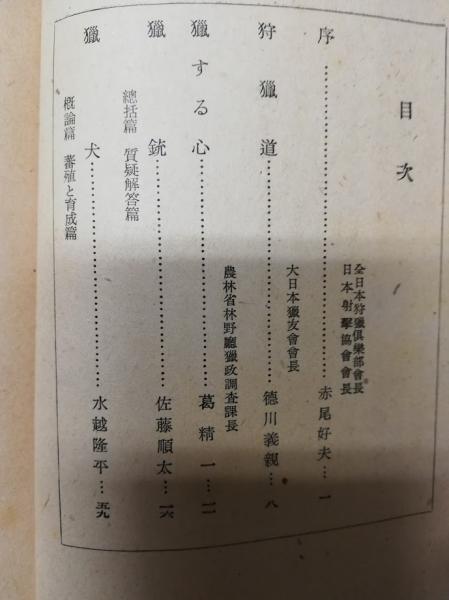 目次
序……………………
全日本狩獵倶樂部會長
日本射擊協會會長
赤尾好夫…一
狩獵道……………………
大日本獵友會會長
德川義親…八
獵する心……………………
農林省林野廳獵政調査課長
葛精一…一一
獵銃……………………佐藤順太…一六
總括篇 質疑解答篇
獵犬……………………水越隆平…五九
概論篇 蕃殖と育成篇